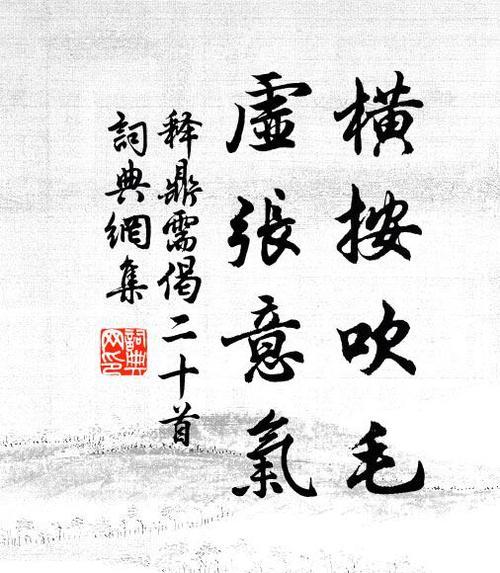 橫按吹毛
虛張意氣
释鼎需偈二十首
詞典網集
詞典
网印